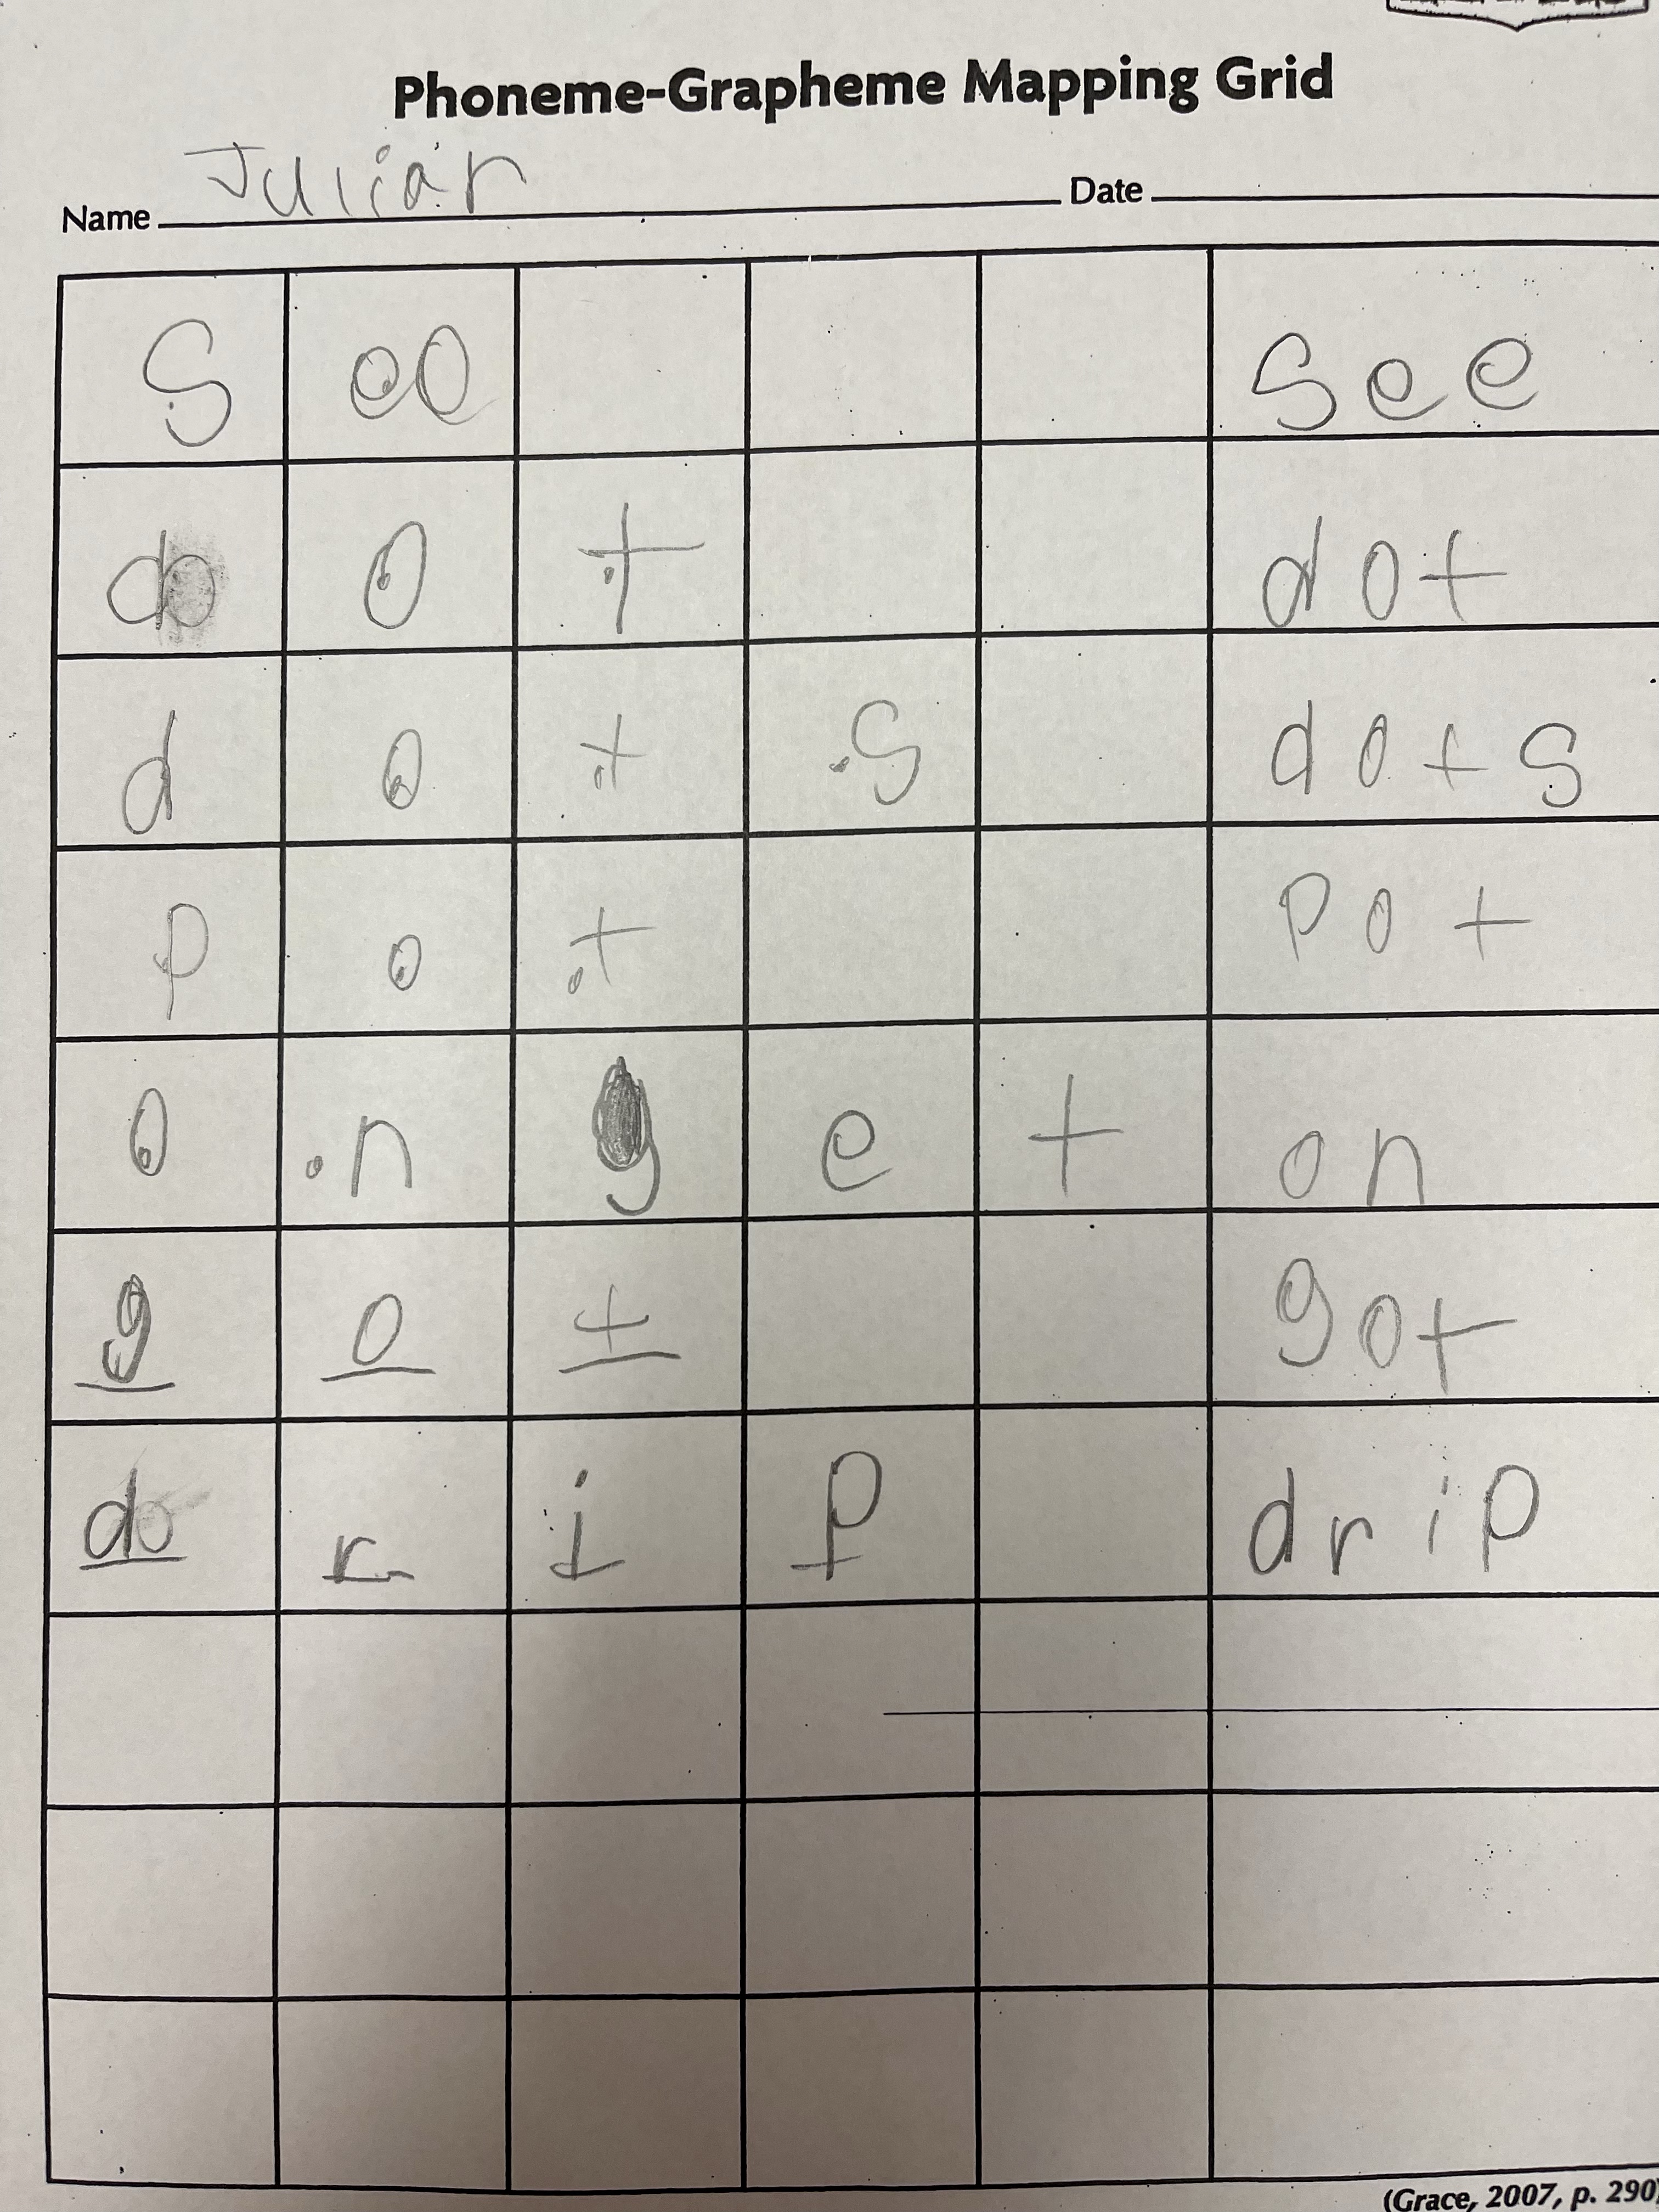 Phoneme-Grapheme Mapping Grid
Name Julian Date
S ee see
d o t dot
d o t s dots
p o t pot
o n g e t on
g o t got
d r i p drip
(Grace, 2007, p. 290)